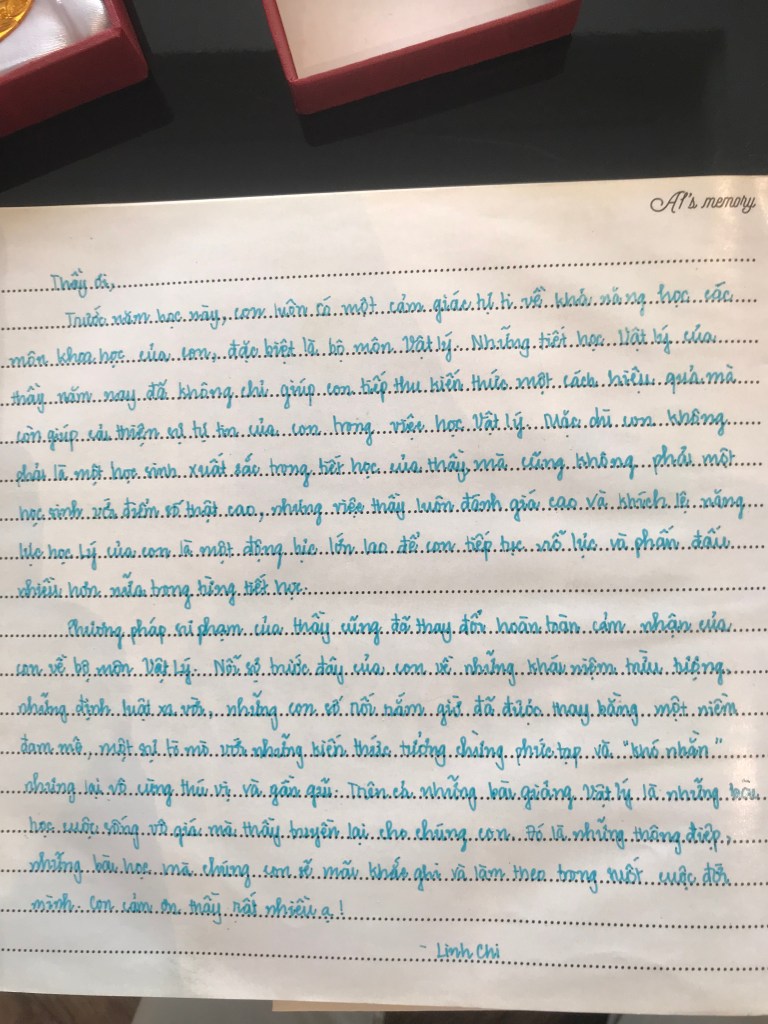 A1's memory
Thầy ơi,
Trước năm học này, con luôn có một cảm giác tự ti về khả năng học các
môn khoa học của con, đặc biệt là bộ môn Vật lý. Những tiết học Vật lý của
thầy năm nay đã không chỉ giúp con tiếp thu kiến thức một cách hiệu quả mà
còn giúp cải thiện sự tự tin của con trong việc học Vật lý. Mặc dù con không
phải là một học sinh xuất sắc trong tiết học của thầy, mà cũng không phải một
học sinh với điểm số thật cao, nhưng việc thầy luôn đánh giá cao và khích lệ năng
lực học Lý của con là một động lực lớn lao để con tiếp tục nỗ lực và phấn đấu
nhiều hơn nữa trong từng tiết học.
Phương pháp sư phạm của thầy cũng đã thay đổi hoàn toàn cảm nhận của
con về bộ môn Vật Lý. Nỗi sợ trước đây của con về những khái niệm trừu tượng,
những định luật xa vời, những con số rối rắm giờ đã được thay bằng một niềm
đam mê, một sự tò mò với những kiến thức tưởng chừng phức tạp và "khó nhằn"
nhưng lại vô cùng thú vị và gần gũi. Trên cả những bài giảng Vật lý là những bài
học cuộc sống vô giá mà thầy truyền lại cho chúng con. Đó là những thông điệp,
những bài học mà chúng con sẽ mãi khắc ghi và làm theo trong suốt cuộc đời
mình. Con cảm ơn thầy rất nhiều ạ!
- Linh Chi